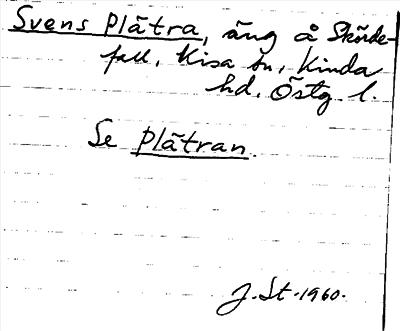 Svens Plätra, äng å Skörde-
fall, Kisa sn, Kinda
hd. Östg l.
Se Plätran.
J. St. 1960.